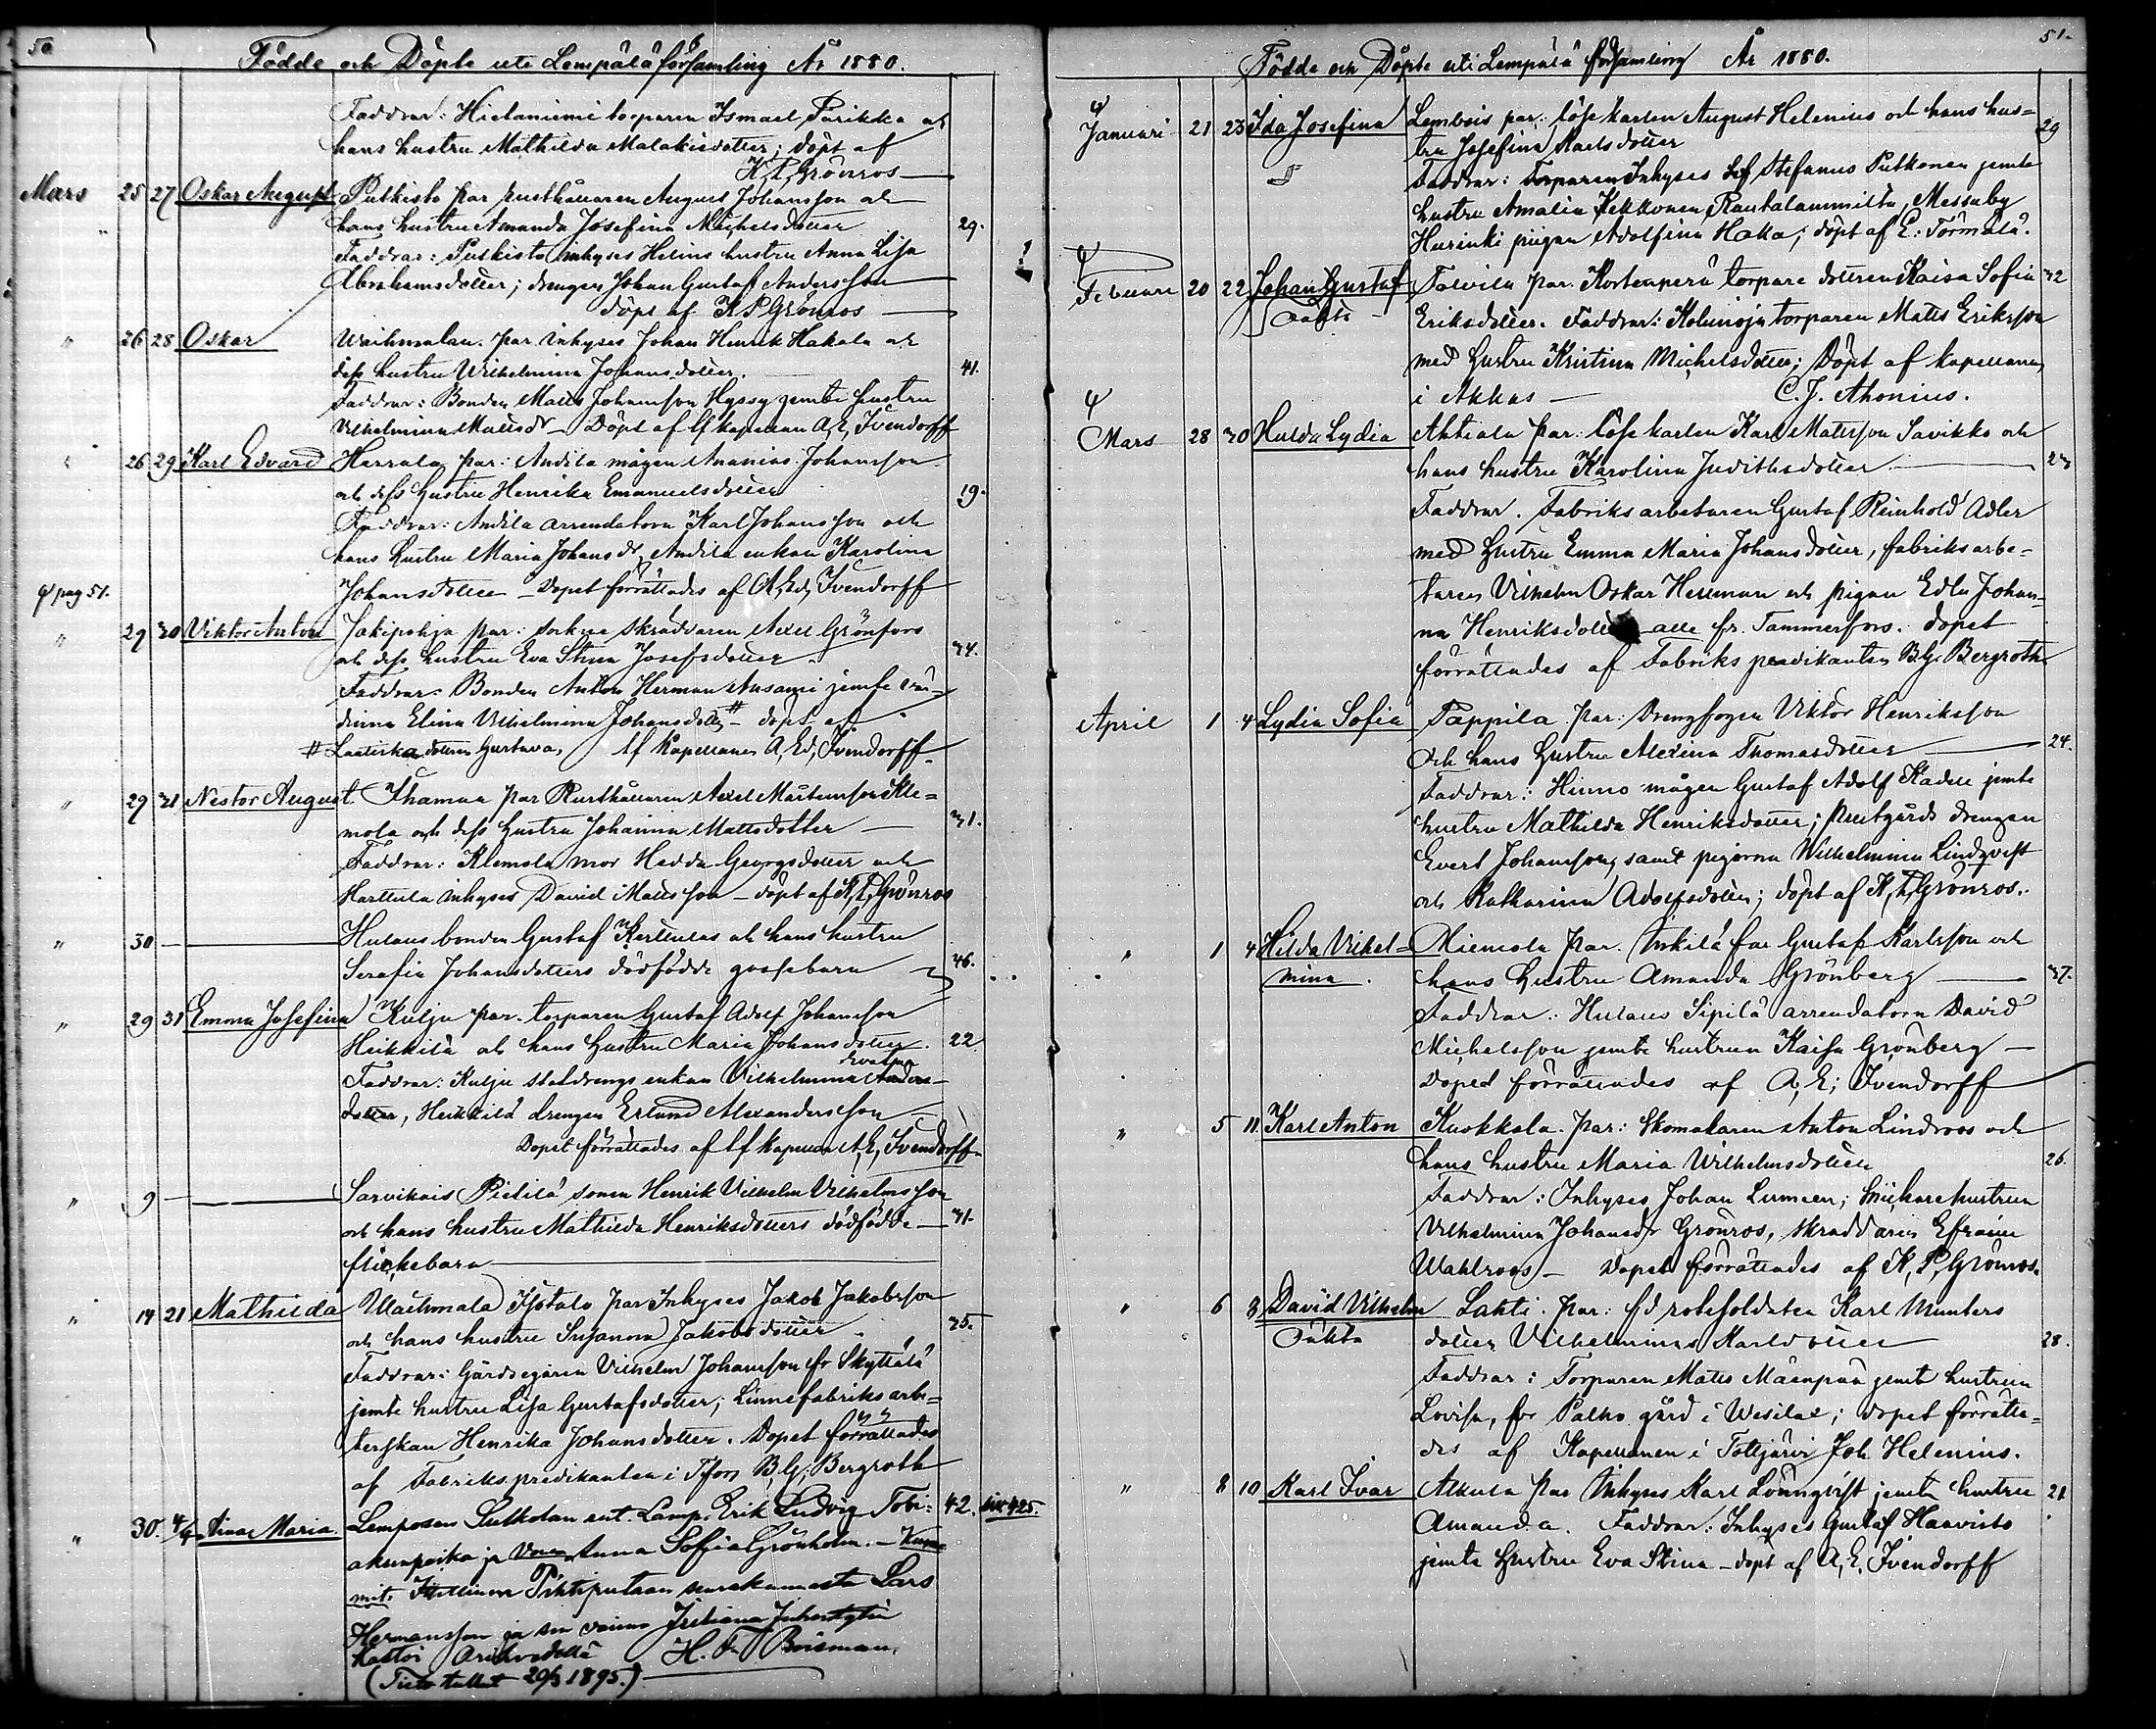 50
Födde och Döpte uti Lempälä församling År 1880.
Faddrar: Hietaniemi torparen Ismael Parikka och
hans hustru Mathilda Malakiedotter; döpt af
K, P, Grönros
Mars 25 27 Oskar August Putkisto par rusthållaren August Johansson och
hans hustru Amanda Josefina Michelsdotter 29.
Faddrar: Putkisto inhyses Helins hustru Anna Lisa
Abrahamsdotter; drengen Johan Gustaf Andersson
döpt af K P Grönros
" 26 28 Oskar inhyses Johan Henrik Hakala och
dess hustru Wilhelmina Johansdotter. 41.
Faddrar: Bonden Matts Johansson Hyssy jemte hustru
Vilhelmina Mattsdr Döpt af Kapellan A, E, Ivendorff
" 26 29 Karl Edvard Herrala par: Andila mågen Ananias Johansson
och dess hustru Henrika Emanuelsdotter 19.
Faddrar: Andila arrendatorn Karl Johansson och
hans hustru Maria Johansdr, Andila enkan Karolina
Johansdotter – Dopet förrättades af A, Ed, Ivendorff
φ pag 51.
" 29 30 Viktor Anton par: sockne skräddaren Axel Grönfors
och dess hustru Eva Stina Josefsdotter 34.
Faddrar: Bonden Anton Herman Ansami jemte vär-
dinna Elina Vilhelmina Johansdotter # – döpt af
# dottren Gustava, Kapellanen A, Ed, Ivendorff
" 29 31 Nestor August par Rusthållaren Axel Mårtensson Kle=
mola och dess hustru Johanna Mattsdotter 31.
Faddrar: Klemola mor Hedda Georgsdotter och
Harttula inhyses David Mattsson – döpt af K, P, Grönros
" 30 Hulaus bonden Gustaf Kerttulas och hans hustru
Serafia Johansdotters dödfödde gossebarn 46.
" 29 31 Emma Josefina Kulju par. torparen Gustaf Adolf Johansson
Heikkilä och hans hustru Maria Johansdotter. 22.
Faddrar: Kulju staldrengs enkan Vilhelmina Anders-
dotter, Heikkilä drengen Erland Alexandersson
Dopet förrättades af Kapellan A, E, Ivendorff
" 9 Sarvikais Pietilä sonen Henrik Vilhelm Vilhelmsson
och hans hustru Mathilda Henriksdotters dödfödde 31.
flickebarn
" 14 21 Mathilda par Inhyses Jakob Jakobsson
och hans hustru Susanna Jakobsdotter 35.
Faddrar: Gårdsegaren Vilhelm Johansson fr Skyttälä
jemte hustru Lisa Gustafsdotter; Linnefabriks arbe=
terskan Henrika Johansdotter. Dopet förrättades
af Fabriks predikanten i Tfors B. G. Bergroth
" 30. 4/4 Maria. Lempoisen Sulkolan ent. Lamp. Erik Ludvig Tobi- 42.
ja Anna Sofia Grönholm. – Kum-
mit: Pihtiputaan Lars
Hermansson ja sen vaimo
Kastoi H. F. T. Boisman.
20/3 1895.)
51.
Födde och Döpte uti Lempälä församling År 1880.
φ
Januari 21 23 Ida Josefina Lembois par: löskarlen August Helenius och hans hus= 29
tru Josefina Karlsdotter
Faddrar: Inhyses Stefanus Putkonen jemte
hustru Amalia Kekkonen, Rautalammilta, Messuby
Hurinki pigan Adolfina Haka; döpt af E: Törmälä.
φ
Februari 20 22 Johan Gustaf par. Kortenperä torpare dottren Kaisa Sofia 32
Oäkta Eriksdotter. Faddrar: torparen Matts Eriksson
med hustru Kristina Michelsdotter; Döpt af kapellanen
i Akkas – C. J. Ahonius.
φ
Mars 28 30 Hulda Lydia Ahtiala par: löskarlen Karl Mattsson Savikko och
hans hustru Karolina Judithsdotter
Faddrar. Fabriks arbetaren Gustaf Reinhold Adler
med hustru Emma Maria Johansdotter, fabriksarbe-
taren Vilhelm Oskar Hellman och pigan Edla Johan-
na Henriksdotter alle fr. Tammerfors. dopet
förrättades af Fabriks predikanten B. G. Bergroth
April 1 4 Lydia Sofia Pappila par: Drengfogen Viktor Henriksson
och hans hustru Alexina Thomasdotter 24.
Faddrar: mågen Gustaf Adolf jemte
hustru Mathilda Henriksdotter; prestgårds drengen
Evert Johansson, samt pigorna Wilhelmina Lindqvist
och Katharina Adolfsdotter; döpt af K, P, Grönros.
" 1 4 Hilda Vilhel= Miemola par. far Gustaf Karlsson och
mina. hans hustru Amanda Grönberg 37.
Faddrar: Hulaus Sipilä arrendatorn David
Michelsson jemte hustrun Kaisa Grönberg –
Dopet förrättades af A, E; Ivendorff
" 5 11 Karl Anton Kuokkala. par: Skomakaren Anton Lindroos och
hans hustru Maria Wilhelmsdotter 26.
Faddrar: Inhyses Johan; hustrun
Vilhelmina Johansdr Grönros, skräddaren Efraim
Wahlroos – Dopet förrättades af K, P, Grönros.
" 6 8 David Vilhelm Lahti. par: fd rotesoldaten Karl Munters
Oäkta dotter Vilhelmina Karlsdotter 28.
Faddrar: Torparen Matts Mäenpää jemte hustrun
Lovisa, fr Palho gård i Wesilax; dopet förrätta=
des af Kapellanen i Tottijärvi Joh Helenius.
" 8 10 Karl Ivar Alkula par Inhyses Karl Lönnqvist jemte hustru 21.
Amanda. Faddrar: Inhyses Gustaf Haavisto
jemte hustru Eva Stina – döpt af A, E, Ivendorff